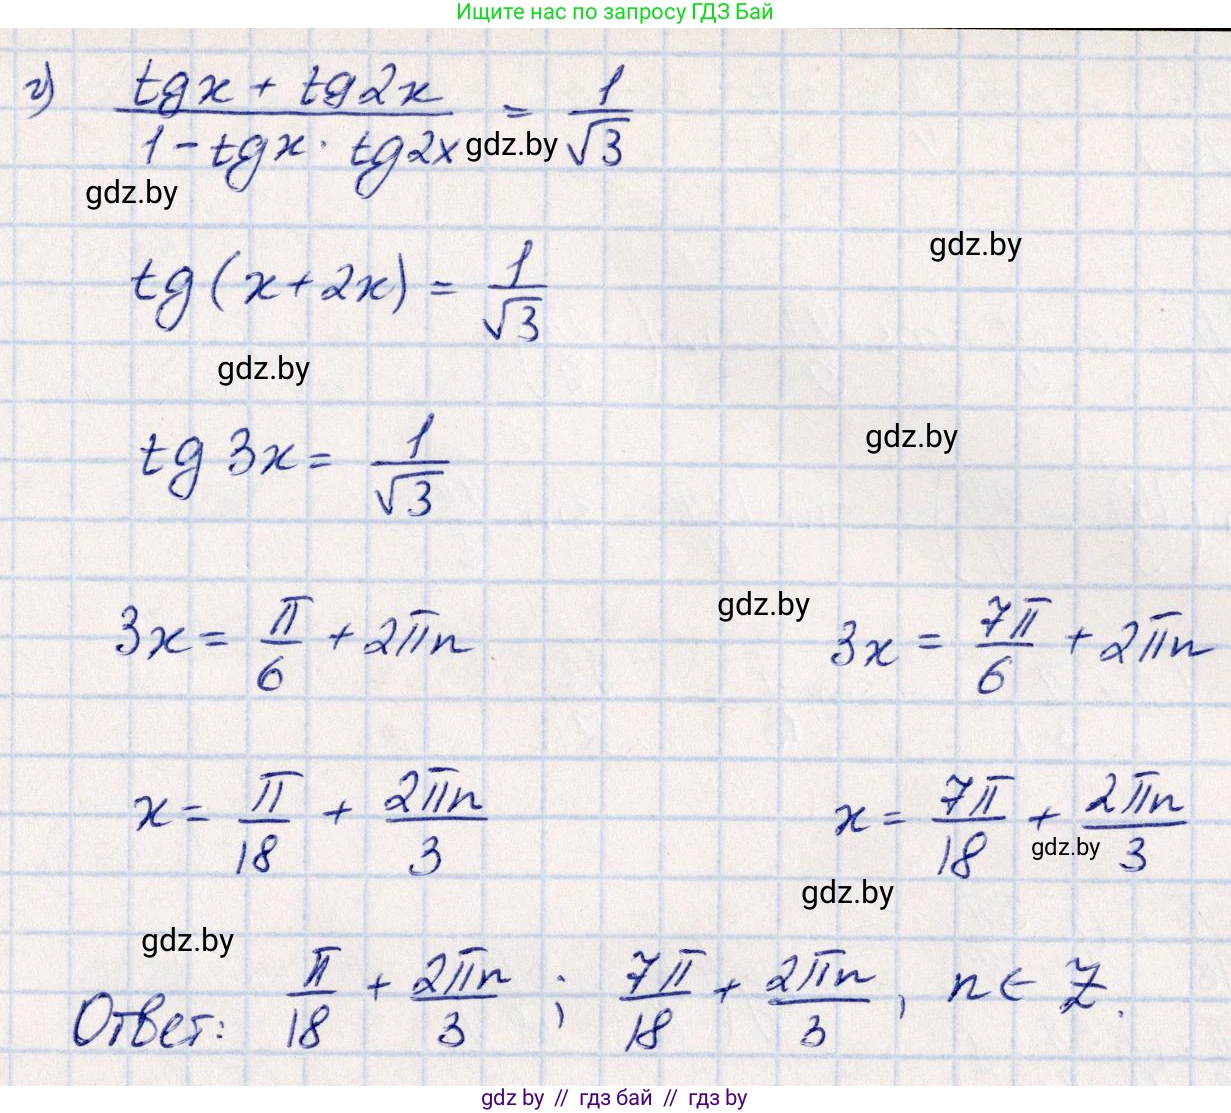 Ищите нас по запросу ГДЗ Бай
г) (tgx + tg2x)/(1 - tgx · tg2x) = 1/√3
gdz.by
gdz.by
gdz.by
tg(x+2x) = 1/√3
gdz.by
tg 3x = 1/√3
gdz.by
3x = π/6 + 2πn
gdz.by
3x = 7π/6 + 2πn
x = π/18 + 2πn/3
x = 7π/18 + 2πn/3
gdz.by
gdz.by
gdz.by
Ответ: π/18 + 2πn/3 ; 7π/18 + 2πn/3, n ∈ Z.
gdz.by // гдз бай // гдз by